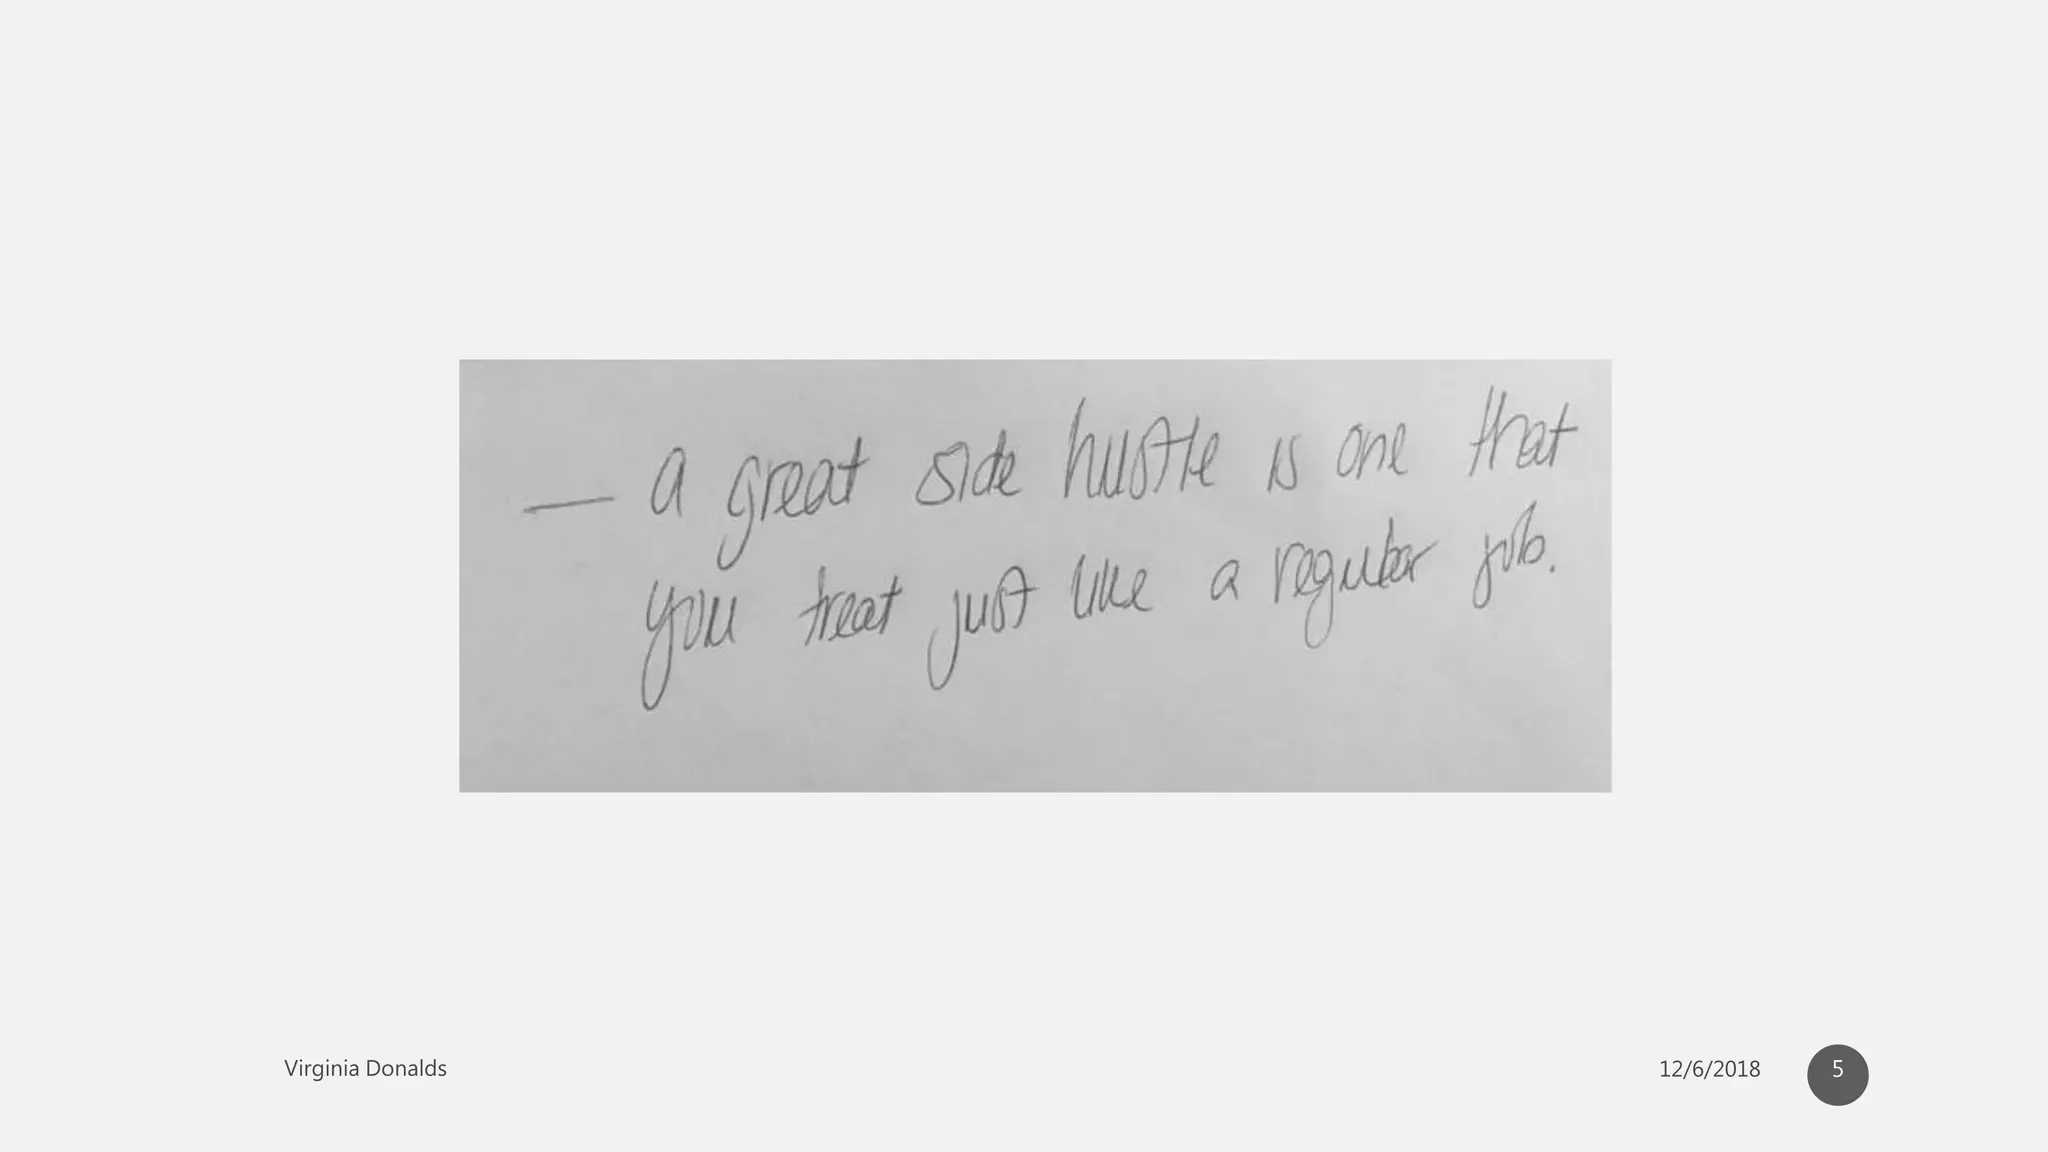 — a great side hustle is one that
you treat just like a regular job.
Virginia Donalds
12/6/2018
5